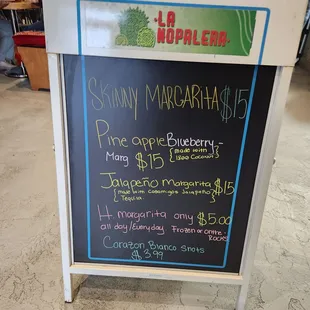 LA
NOPALERA
SKINNY MARGARITA $15
Pineapple Blueberry-
Marg $15 {made with
1800 Coconut}
Jalapeño margarita $15
{made with Cazadores Jalapeño}
Tequila
H. margarita only $5.00
all day/Everyday Frozen or on the-
Rocks
Corazon Blanco Shots
$3.99